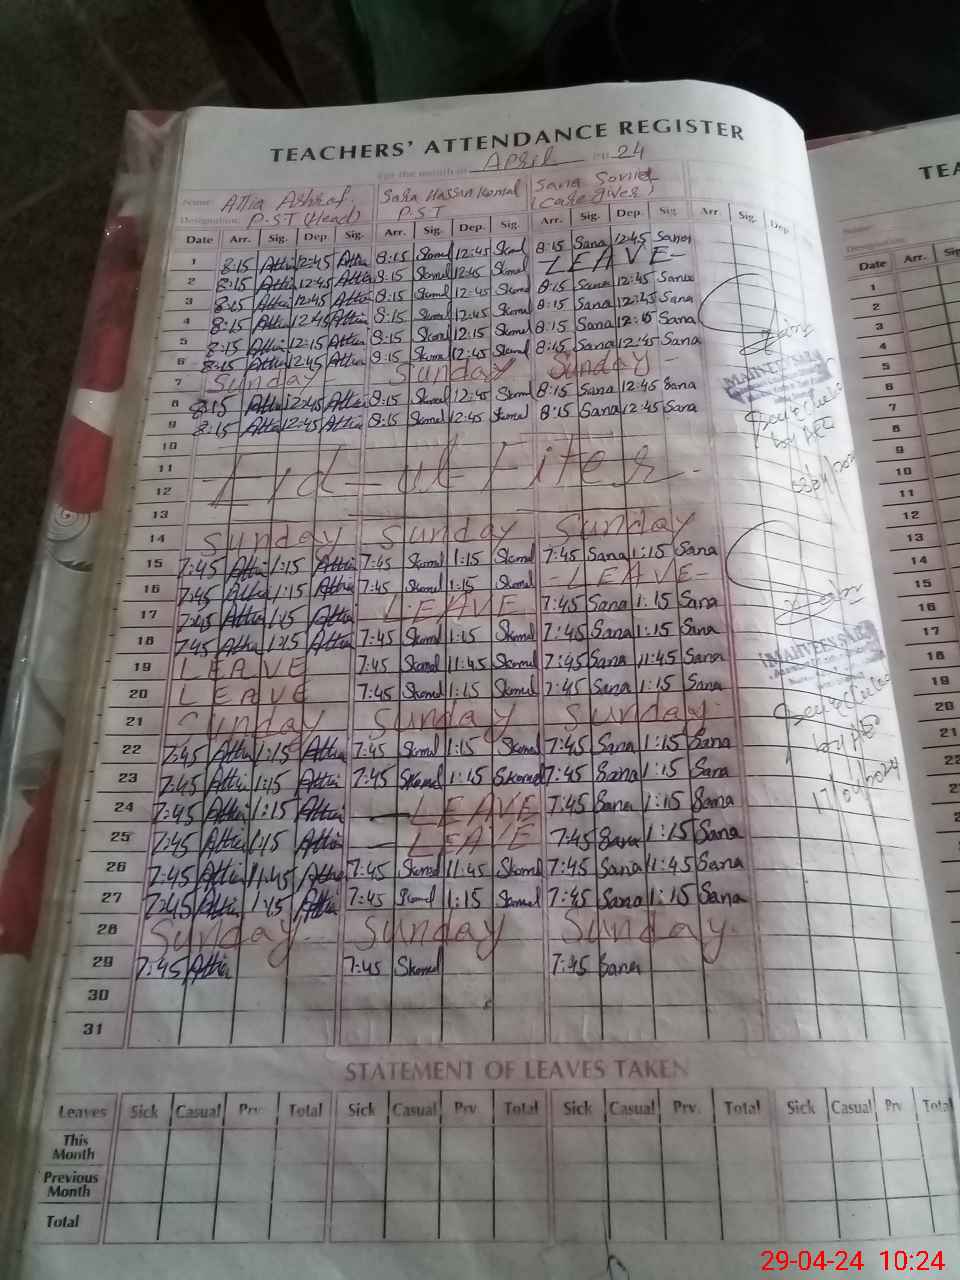 TEACHERS' ATTENDANCE REGISTER
For the month of April 24
Name: Attia Ashraf Sara Hassan Komal Sana
Designation: P.S.T (Head) P.S.T (Care giver)
Date Arr. Sig. Dep. Sig. Arr. Sig. Dep. Sig. Arr. Sig. Dep. Sig. Arr. Sig. Dep.
1 8:15 Attia 12:45 Attia 8:15 Skomal 12:45 Skomal 8:15 Sana 12:45 Sana
2 8:15 Attia 12:45 Attia 8:15 Skomal 12:45 Skomal LEAVE-
3 8:15 Attia 12:45 Attia 8:15 Skomal 12:45 Skomal 8:15 Sana 12:45 Sana
4 8:15 Attia 12:45 Attia 8:15 Skomal 12:45 Skomal 8:15 Sana 12:45 Sana
5 8:15 Attia 12:15 Attia 8:15 Skomal 12:15 Skomal 8:15 Sana 12:15 Sana
6 8:15 Attia 12:45 Attia 8:15 Skomal 12:45 Skomal 8:15 Sana 12:45 Sana
7 Sunday Sunday Sunday -
8 8:15 Attia 12:45 Attia 8:15 Skomal 12:45 Skomal 8:15 Sana 12:45 Sana
9 8:15 Attia 12:45 Attia 8:15 Skomal 12:45 Skomal 8:15 Sana 12:45 Sana
10
11 Eid-ul-Fiter.
12
13
14 Sunday Sunday Sunday
15 7:45 Attia 1:15 Attia 7:45 Skomal 1:15 Skomal 7:45 Sana 1:15 Sana
16 7:45 Attia 1:15 Attia 7:45 Skomal 1:15 Skomal - LEAVE-
17 7:45 Attia 1:15 Attia LEAVE 7:45 Sana 1:15 Sana
18 7:45 Attia 1:45 Attia 7:45 Skomal 1:15 Skomal 7:45 Sana 1:15 Sana
19 LEAVE 7:45 Skomal 11:45 Skomal 7:45 Sana 11:45 Sana
20 LEAVE 7:45 Skomal 1:15 Skomal 7:45 Sana 1:15 Sana
21 Sunday Sunday Sunday.
22 7:45 Attia 1:15 Attia 7:45 Skomal 1:15 Skomal 7:45 Sana 1:15 Sana
23 7:45 Attia 1:15 Attia 7:45 Skomal 1:15 Skomal 7:45 Sana 1:15 Sana
24 7:45 Attia 1:15 Attia — LEAVE 7:45 Sana 1:15 Sana
25 7:45 Attia 1:15 Attia — LEAVE 7:45 Sana 1:15 Sana
26 7:45 Attia 11:45 Attia 7:45 Skomal 11:45 Skomal 7:45 Sana 11:45 Sana
27 7:45 Attia 1:15 Attia 7:45 Skomal 1:15 Skomal 7:45 Sana 1:15 Sana
28 Sunday. Sunday Sunday.
29 7:45 Attia 7:45 Skomal 7:45 Sana
30
31
by AEO
MAHVEEN SABA
by AEO
17/04/2024
STATEMENT OF LEAVES TAKEN
Leaves Sick Casual Prv. Total Sick Casual Prv. Total Sick Casual Prv. Total Sick Casual Prv Total
This Month
Previous Month
Total
TEA
Name:
Designation
Date Arr. Sig
1
2
3
4
5
6
7
8
9
10
11
12
13
14
15
16
17
18
19
20
21
22
29-04-24 10:24